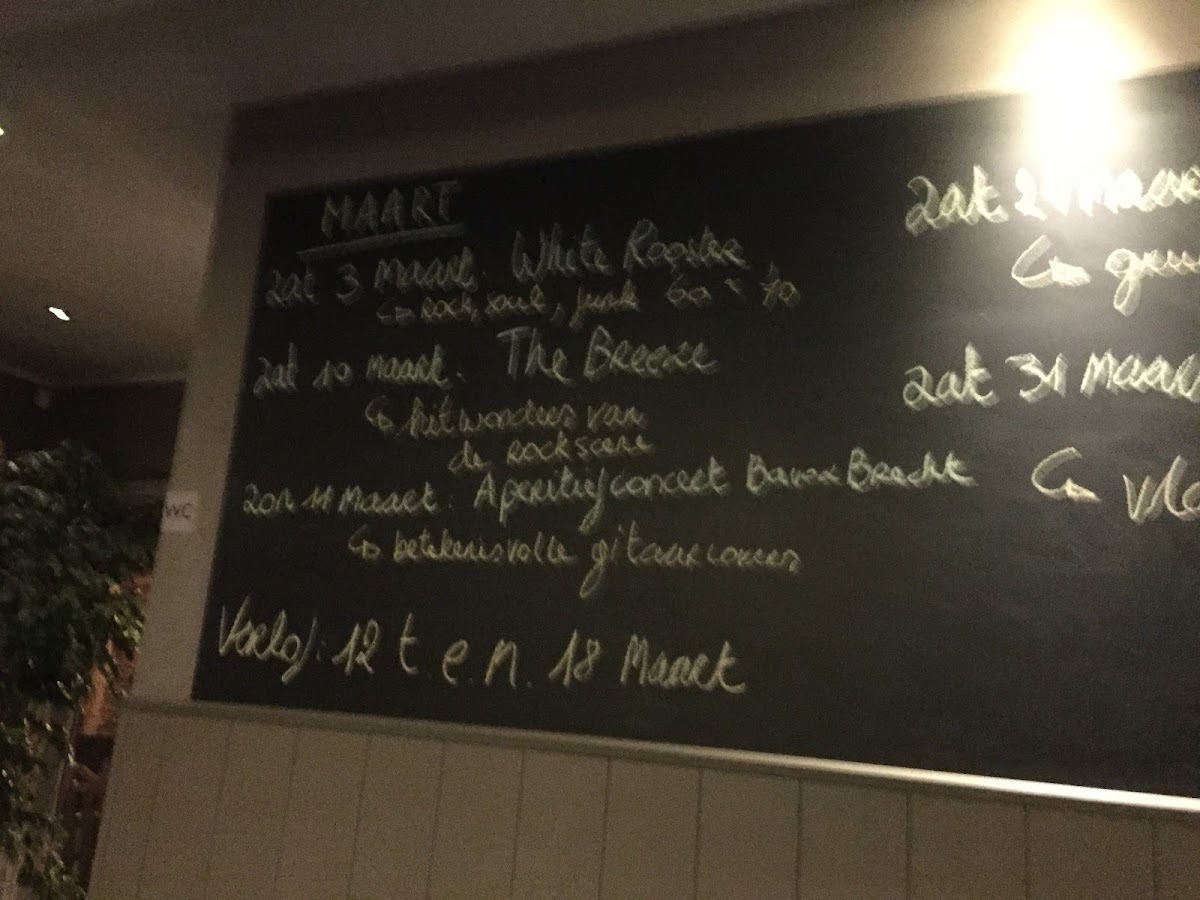 MAART
zat 3 maart: White Rooster
↳ rock, soul, funk 60 - 70
zat 10 maart: The Breeze
↳ hitwonders van
de rockscene
zon 11 Maart: Aperitiefconcert Bracht
↳ betekenisvolle gitaarcovers
Verlof: 12 t.e.m. 18 Maart
zat Maar
↳
zat 31 Maar
↳
WC